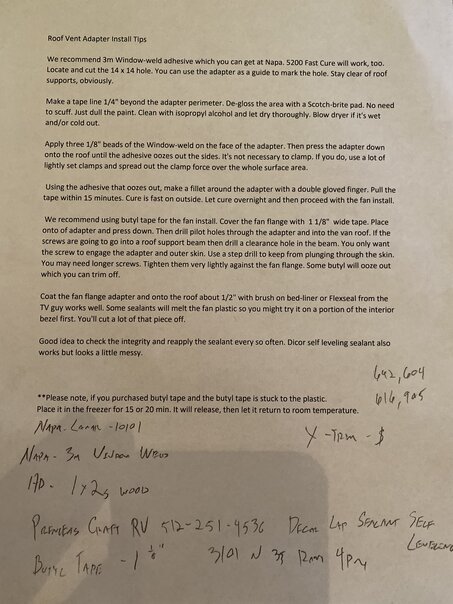 Roof Vent Adapter Install Tips
We recommend 3m Window-weld adhesive which you can get at Napa. 5200 Fast Cure will work, too.
Locate and cut the 14 x 14 hole. You can use the adapter as a guide to mark the hole. Stay clear of roof
supports, obviously.
Make a tape line 1/4" beyond the adapter perimeter. De-gloss the area with a Scotch-brite pad. No need
to scuff. Just dull the paint. Clean with isopropyl alcohol and let dry thoroughly. Blow dryer if it's wet
and/or cold out.
Apply three 1/8" beads of the Window-weld on the face of the adapter. Then press the adapter down
onto the roof until the adhesive oozes out the sides. It's not necessary to clamp. If you do, use a lot of
lightly set clamps and spread out the clamp force over the whole surface area.
Using the adhesive that oozes out, make a fillet around the adapter with a double gloved finger. Pull the
tape within 15 minutes. Cure is fast on outside. Let cure overnight and then proceed with the fan install.
We recommend using butyl tape for the fan install. Cover the fan flange with 1 1/8" wide tape. Place
onto of adapter and press down. Then drill pilot holes through the adapter and into the van roof. If the
screws are going to go into a roof support beam then drill a clearance hole in the beam. You only want
the screw to engage the adapter and outer skin. Use a step drill to keep from plunging through the skin.
You may need longer screws. Tighten them very lightly against the fan flange. Some butyl will ooze out
which you can trim off.
Coat the fan flange adapter and onto the roof about 1/2" with brush on bed-liner or Flexseal from the
TV guy works well. Some sealants will melt the fan plastic so you might try it on a portion of the interior
bezel first. You'll cut a lot of that piece off.
Good idea to check the integrity and reapply the sealant every so often. Dicor self leveling sealant also
works but looks a little messy.
642,604
616,905
**Please note, if you purchased butyl tape and the butyl tape is stuck to the plastic.
Place it in the freezer for 15 or 20 min. It will release, then let it return to room temperature.
Napa - Lamar - 10101
X - Trm - $
Napa - 3m Window Weld
HD - 1 x 2s wood
Craft RV 512-251-4536 Lap Sealant Self
Leveling
Butyl Tape - 1 1/8" 3101 N 35 4pm